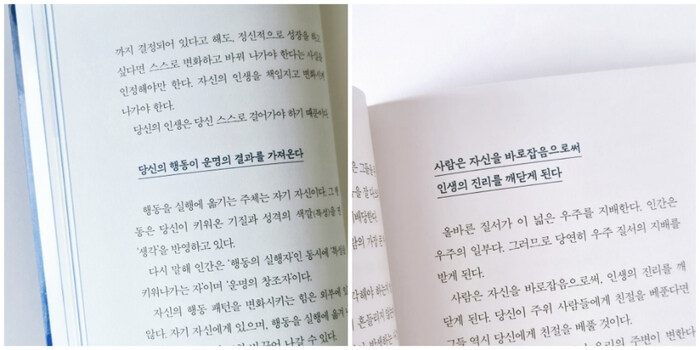 까지 결정되어 있다고 해도, 정신적으로 성장을 하고
싶다면 스스로 변화하고 바꿔 나가야 한다는 사실을
인정해야만 한다. 자신의 인생을 책임지고 변화시켜
나가야 한다.
당신의 인생은 당신 스스로 걸어가야 하기 때문이다.
당신의 행동이 운명의 결과를 가져온다
행동을 실행에 옮기는 주체는 자기 자신이다. 그 행
동은 당신이 키워온 기질과 성격의 색깔(특성)을 띤
'생각'을 반영하고 있다.
다시 말해 인간은 '행동의 실행자'인 동시에 '특성을
키워나가는 자'이며 '운명의 창조자'이다.
자신의 행동 패턴을 변화시키는 힘은 외부에 있지
않다. 자기 자신에게 있으며, 행동을 실행에 옮겨
나갈 수 있다.
사람은 자신을 바로잡음으로써
인생의 진리를 깨닫게 된다
올바른 질서가 이 넓은 우주를 지배한다. 인간은
우주의 일부다. 그러므로 당연히 우주 질서의 지배를
받게 된다.
사람은 자신을 바로잡음으로써, 인생의 진리를 깨
닫게 된다. 당신이 주위 사람들에게 친절을 베푼다면
그들 역시 당신에게 친절을 베풀 것이다.
주변이 변한다